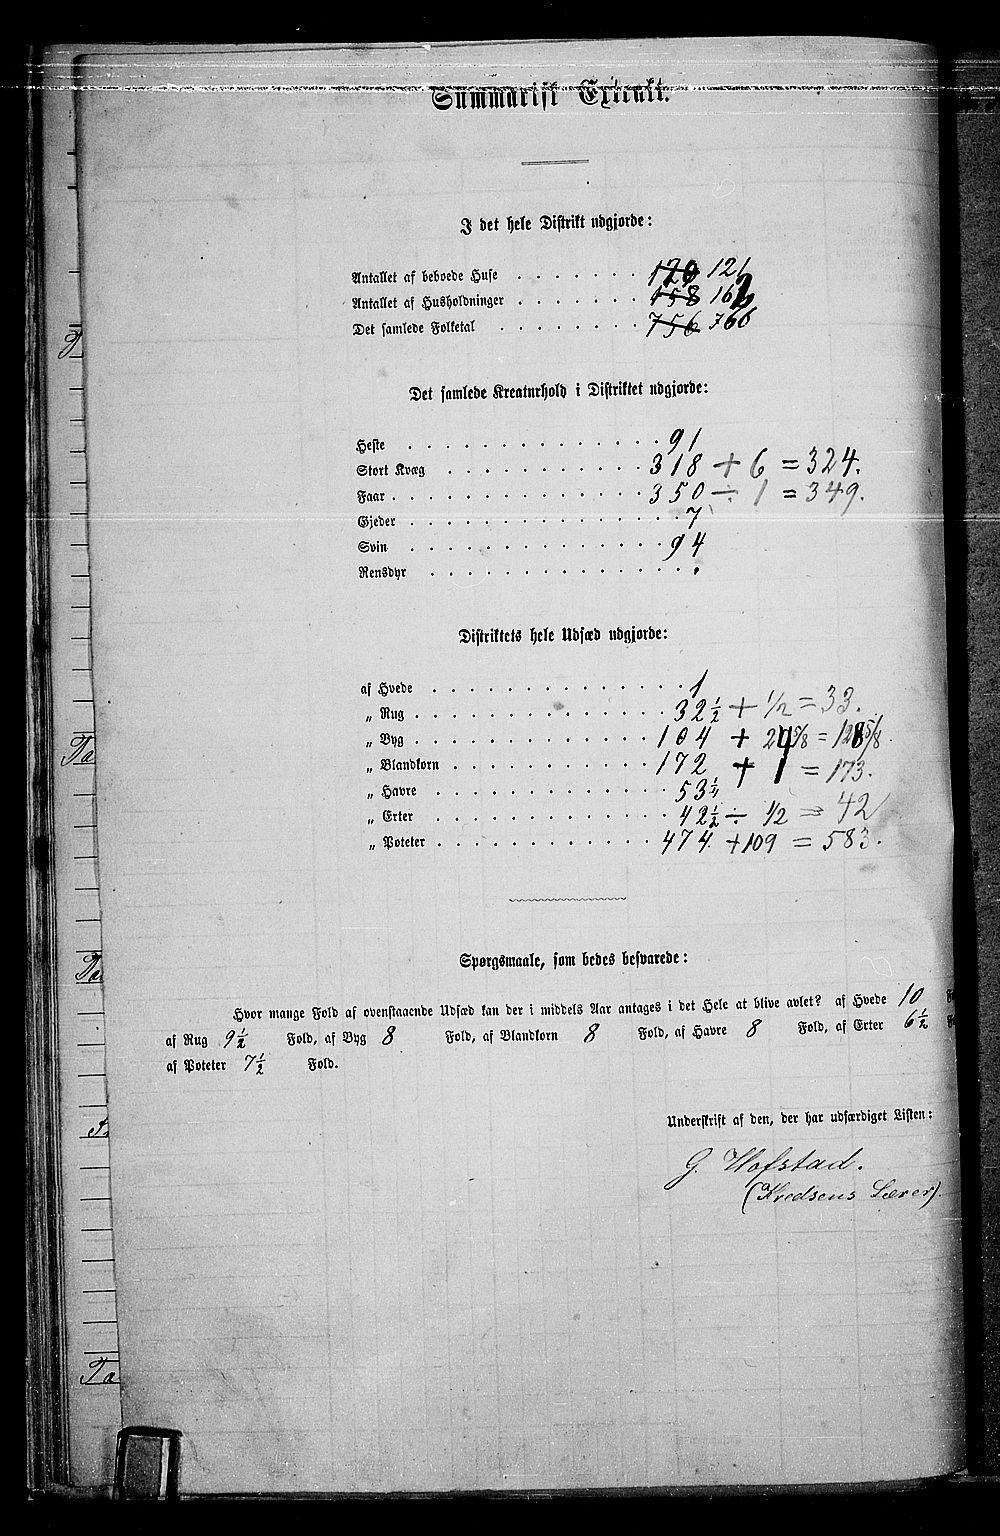 Summarisk Extrakt.
I det hele Distrikt udgjorde:
Antallet af beboede Huse . . . . . . . 120 121
Antallet af Husholdninger . . . . . . . 158 162
Det samlede Folketal . . . . . . . . 756 766
Det samlede Kreaturhold i Distriktet udgjorde:
Heste . . . . . . . . . . . . . . 91
Stort Kvæg . . . . . . . . . . . . 318 + 6 = 324.
Faar . . . . . . . . . . . . . . 350 ÷ 1 = 349.
Gjeder . . . . . . . . . . . . . . 7
Svin . . . . . . . . . . . . . . 94
Rensdyr . . . . . . . . . . . . . .
Distriktets hele Udsæd udgjorde:
af Hvede . . . . . . . . . . . . . . 1
„ Rug . . . . . . . . . . . . . 32 1/2 + 1/2 = 33.
„ Byg . . . . . . . . . . . . . 104 + 24 5/8 = 128 5/8.
„ Blandkorn . . . . . . . . . . . 172 + 1 = 173.
„ Havre . . . . . . . . . . . . . 53 1/4
„ Erter . . . . . . . . . . . . . 42 1/2 ÷ 1/2 = 42
„ Poteter . . . . . . . . . . . . 474. +109 = 583.
Spørgsmaale, som bedes besvarede:
Hvor mange Fold af ovenstaaende Udsæd kan der i middels Aar antages i det Hele at blive avlet? af Hvede 10
af Rug 9 1/2 Fold, af Byg 8 Fold, af Blandkorn 8 Fold, af Havre 8 Fold, af Erter 6 1/2
af Poteter 7 1/2 Fold.
Underskrift af den, der har udfærdiget Listen:
G. Hofstad.
(Kredsens Lærer).